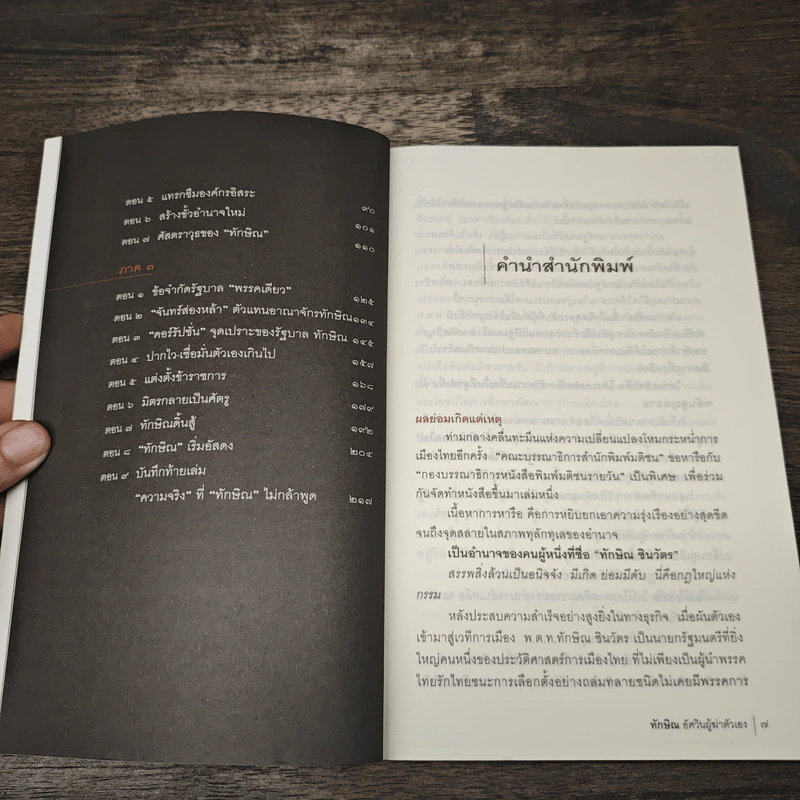 ตอน ๕ แทรกซึมองค์กรอิสระ ๙๐
ตอน ๖ สร้างขั้วอำนาจใหม่ ๑๐๑
ตอน ๗ ศัสตราวุธของ “ทักษิณ” ๑๑๐
ภาค ๓
ตอน ๑ ข้อจำกัดรัฐบาล “พรรคเดียว” ๑๒๕
ตอน ๒ “จันทร์ส่องหล้า” ตัวแทนอาณาจักรทักษิณ ๑๓๔
ตอน ๓ “คอร์รัปชั่น” จุดเปราะของรัฐบาล ทักษิณ ๑๔๕
ตอน ๔ ปากไว-เชื่อมั่นตัวเองเกินไป ๑๕๗
ตอน ๕ แต่งตั้งข้าราชการ ๑๖๘
ตอน ๖ มิตรกลายเป็นศัตรู ๑๗๙
ตอน ๗ ทักษิณดิ้นสู้ ๑๙๒
ตอน ๘ “ทักษิณ” เริ่มอัสดง ๒๐๔
ตอน ๙ บันทึกท้ายเล่ม
“ความจริง” ที่ “ทักษิณ” ไม่กล้าพูด ๒๑๗
คำนำสำนักพิมพ์
ผลย่อมเกิดแต่เหตุ
ท่ามกลางคลื่นทะมึนแห่งความเปลี่ยนแปลงโหมกระหน่ำการ
เมืองไทยอีกครั้ง “คณะบรรณาธิการสำนักพิมพ์มติชน” ขอหารือกับ
“กองบรรณาธิการหนังสือพิมพ์มติชนรายวัน” เป็นพิเศษ เพื่อร่วม
กันจัดทำหนังสือขึ้นมาเล่มหนึ่ง
เนื้อหาการหารือ คือการหยิบยกเอาความรุ่งเรืองอย่างสุดขีด
จนถึงจุดสลายในสภาพทุลักทุเลของอำนาจ
เป็นอำนาจของคนผู้หนึ่งที่ชื่อ “ทักษิณ ชินวัตร”
สรรพสิ่งล้วนเป็นอนิจจัง มีเกิด ย่อมมีดับ นี่คือกฎใหญ่แห่ง
กรรม
หลังประสบความสำเร็จอย่างสูงยิ่งในทางธุรกิจ เมื่อผันตัวเอง
เข้ามาสู่เวทีการเมือง พ.ต.ท.ทักษิณ ชินวัตร เป็นนายกรัฐมนตรีที่ยิ่ง
ใหญ่คนหนึ่งของประวัติศาสตร์การเมืองไทย ที่ไม่เพียงเป็นผู้นำพรรค
ไทยรักไทยชนะการเลือกตั้งอย่างถล่มทลายชนิดไม่เคยมีพรรคการ
ทักษิณ อัศวินผู้ฆ่าตัวเอง | ๗